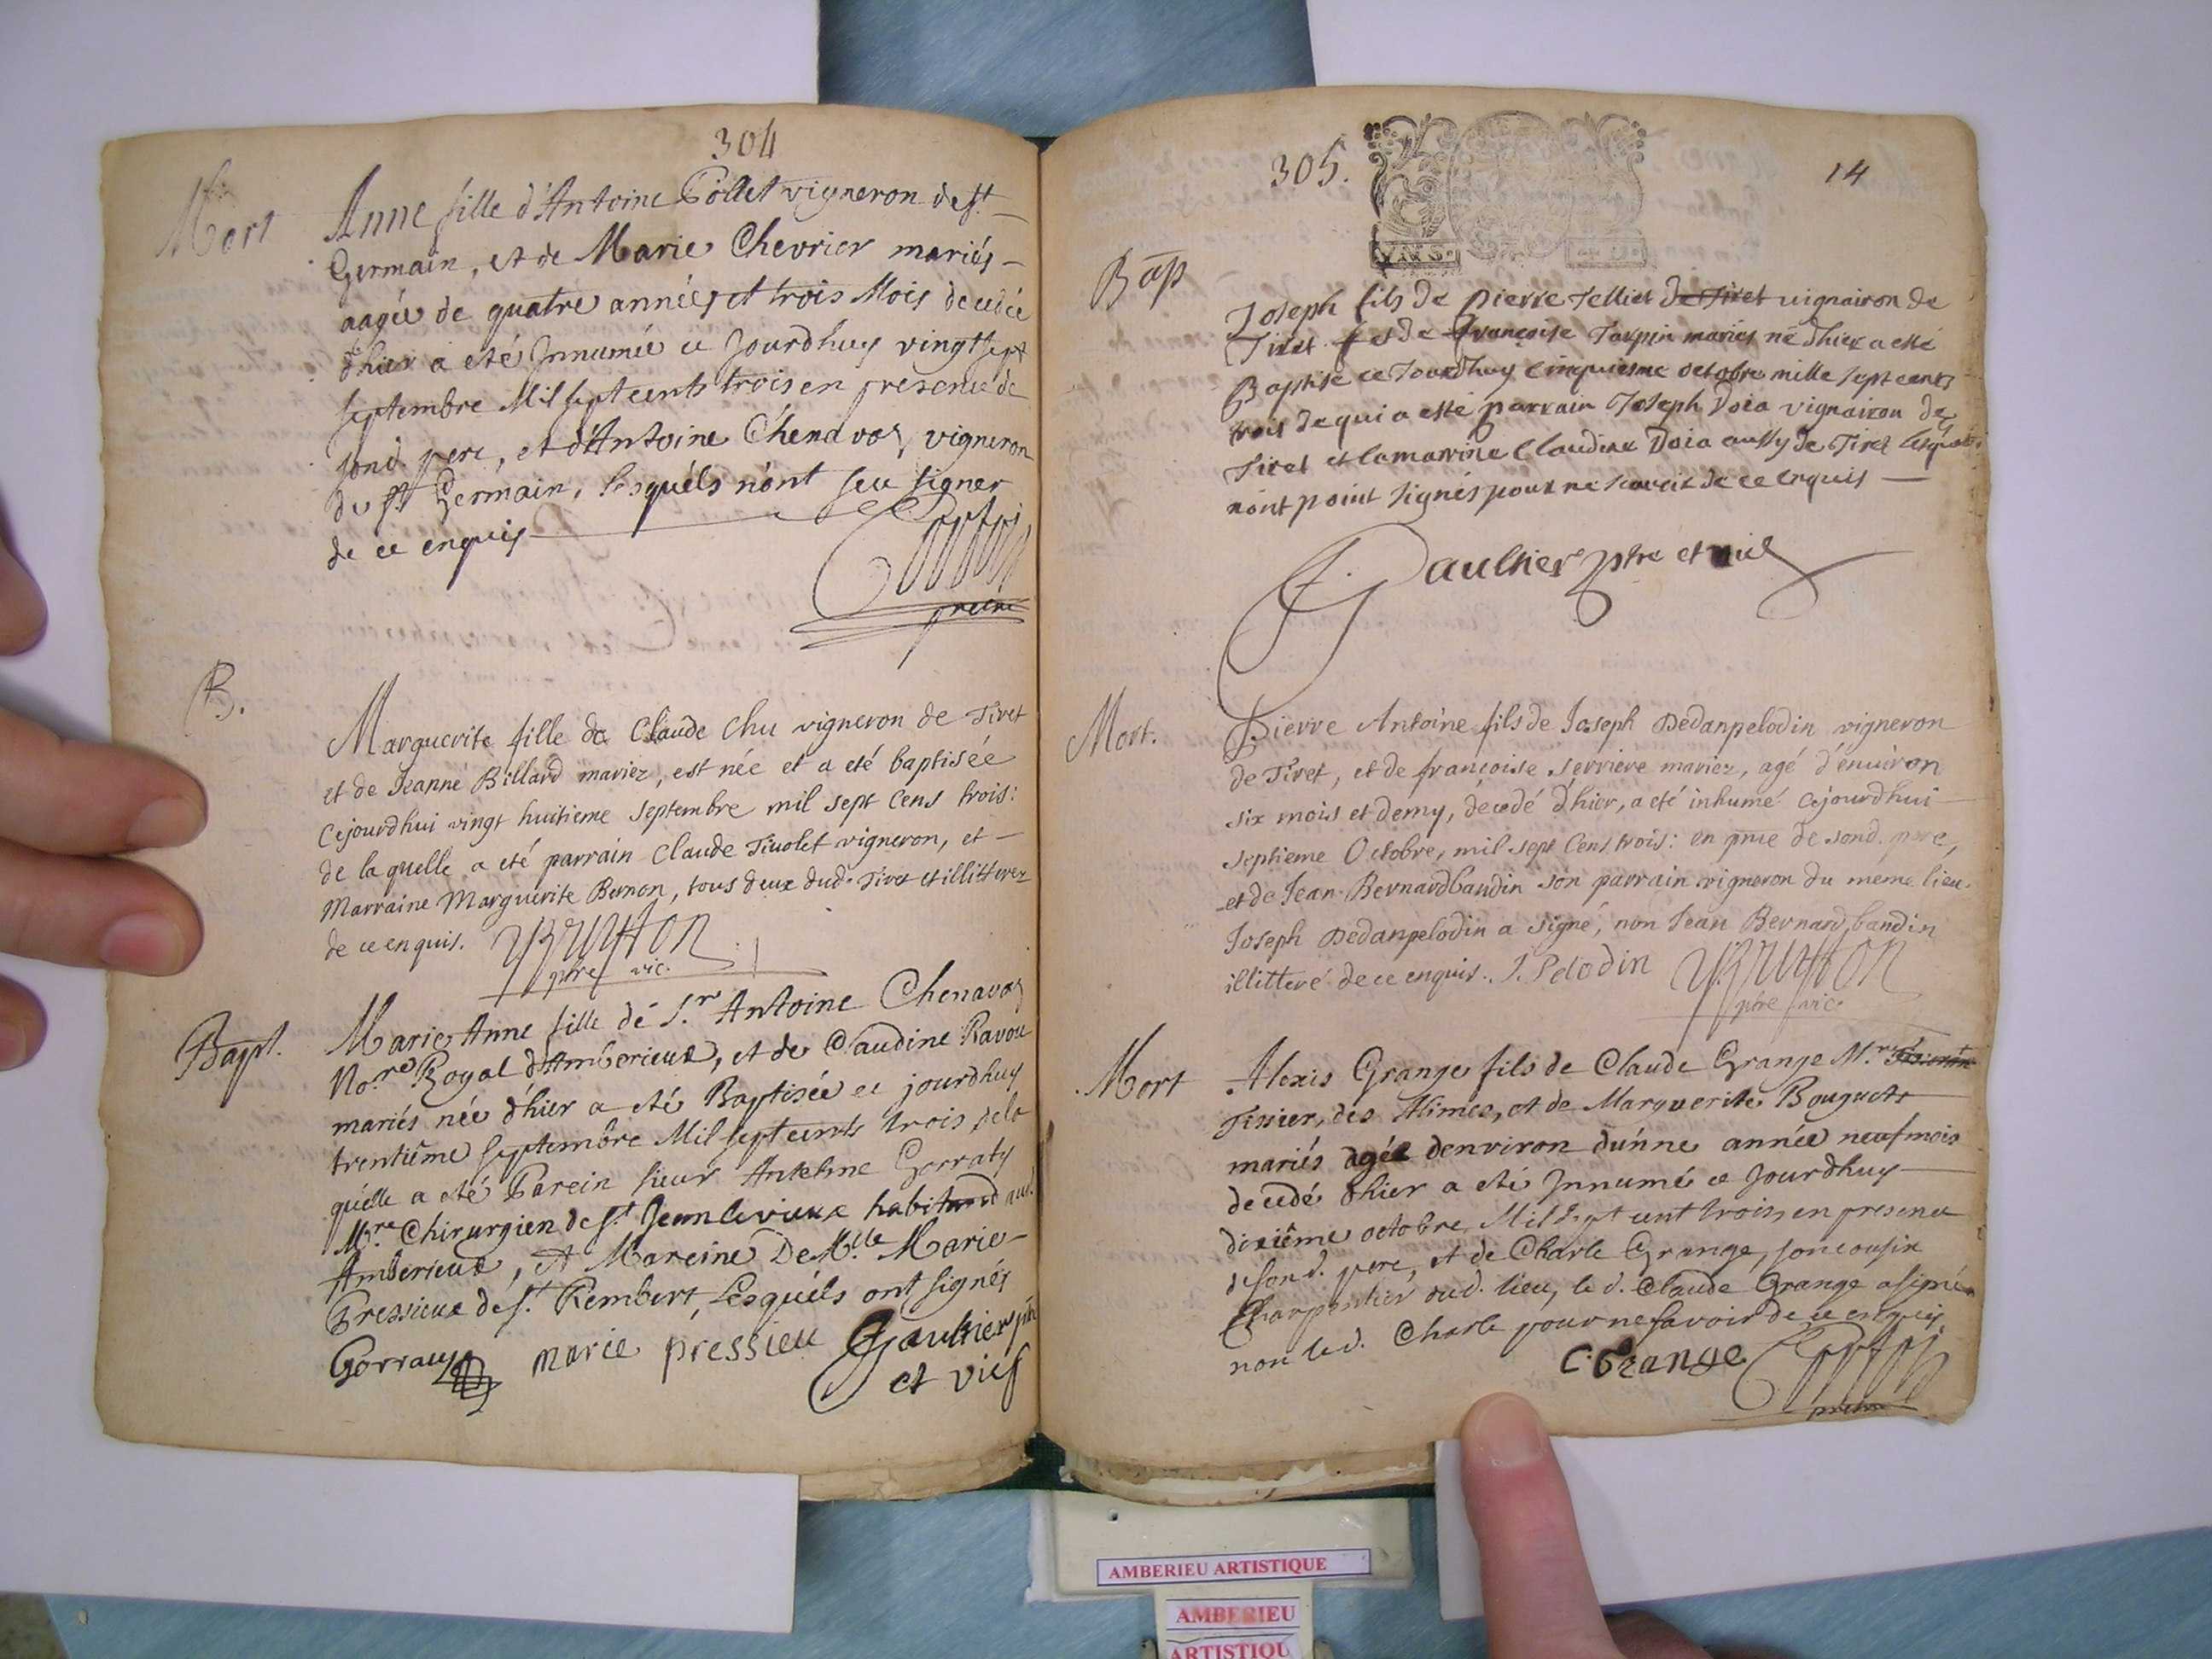 304
Mort
Anne fille d'Antoine Pollet vigneron de st
Germain, et de Marie Chevrier mariés
aagée de quatre années et trois Mois decedée
d'hier a eté Jnnumée ce Jourdhuy vingtsept
septembre Mil sept cents trois en presence de
sond. pere, et d'Antoine Chenavas vigneron
du st Germain, lesquéls n'ont sceu signer
de ce enquis
B.
Marguerite fille de Claude Chu vigneron de Tiret
et de Jeanne Billard mariez, est née et a eté baptisée
cejourdhui vingt huitieme septembre mil sept Cens trois:
de la quelle a eté parrain Claude Tivolet vigneron, et
Marraine Marguerite Bernon, tous deux dud. Tiret et illitterez
de ce enquis.
pbre vic.
Bapt.
Marie Anne fille de S.r Antoine Chenavas
No.re Royal d'Amberieux, et de Claudine Ravou
mariés née d'hier a eté Baptisée ce jourdhuy
trentiême septembre Mil sept cents trois de la
quélle a eté Parein sieur Antelme Gorraty
M.re Chirurgien de s.t Jean le vieux habitand aud.
Amberieux, et Mareine De M.lle Marie
Pressieux de s.t Rembert, Lesquéls ont signés
Gorraty marie pressieu Gaultier
et vic
305.
14
Bap
Joseph fils de pierre Tellier de Tiret vignairon de
Tiret et de françoise Tarpin mariés né d'hier a esté
Baptisé ce Jourdhuy cinquiesme octobre mille sept cents
trois de qui a esté parrain Joseph Doia vignairon de
Tiret et la marrine Claudine Doia aussy de Tiret lesquels
n'ont point signés pour ne scavoir de ce enquis
Gaultier pbre et vic
Mort.
Pierre Antoine fils de Joseph Dedanpelodin vigneron
de Tiret, et de françoise serriere mariez, agé d'enuiron
six mois et demy, décedé d'hier, a eté inhumé cejourdhui
septieme Octobre, mil sept Cens trois: en pnce de sond. pere,
et de Jean Bernard bandin son parrain vigneron du meme lieu.
Joseph Dedanpelodin a signé, non Jean Bernard bandin
illitteré de ce enquis. J. Pelodin
pbre vic.
Mort
Alexis Grange fils de Claude Grange M.re
Tissier, des Alimes, et de Marguerite Bouguet
mariés agée denviron dunne année neuf mois
decedé d'hier a eté Jnnumé ce Jourdhuy
dixiême octobre Mil sept cent trois en presence
de son d. pere, et de Charle Grange, son cousin
Charpentier dud. lieu, le d. Claude Grange a signé
non le d. Charle pour ne savoir de ce enquis.
C. Grange
AMBERIEU ARTISTIQUE
AMBERIEU
ARTISTIQU